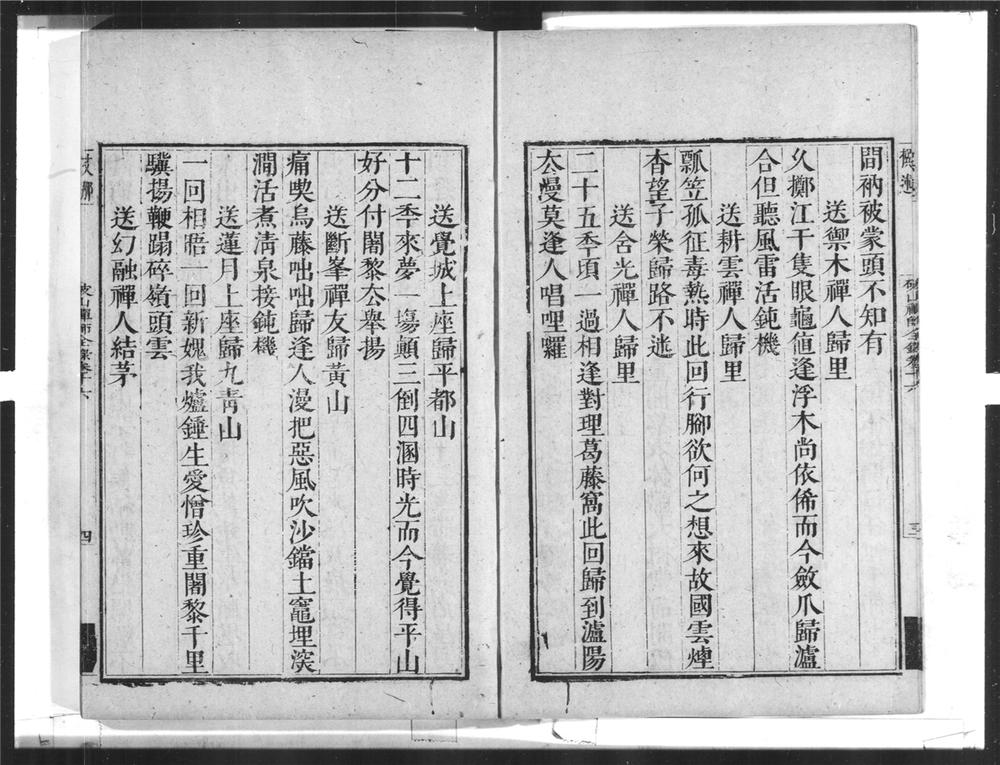 間衲被蒙頭不知有
送禦木禪人歸里
久擲江干隻眼龜値逢浮木尚依俙而今斂爪歸瀘
合但聽風雷活鈍機
送耕雲禪人歸里
瓢笠孤征毒熱時此回行腳欲何之想來故國雲煙
杳望子榮歸路不迷
送含光禪人歸里
二十五季頃一過相逢對理葛藤窩此回歸到瀘陽
厺漫莫逢人唱哩囉
三
送覺城上座歸平都山
十二季來夢一塲顛三倒四溷時光而今覺得平山
好分付闍黎厺舉揚
送斷峯禪友歸黃山
痛喫烏藤咄咄歸逢人漫把惡風吹沙鐺土竈埋深
澗活煮淸泉接鈍機
送蓮月上座歸九青山
一回相晤一回新媿我爐錘生愛憎珍重闍黎千里
驥揚鞭蹋碎嶺頭雲
送幻融禪人結茅
山禪師全錄卷十六
四